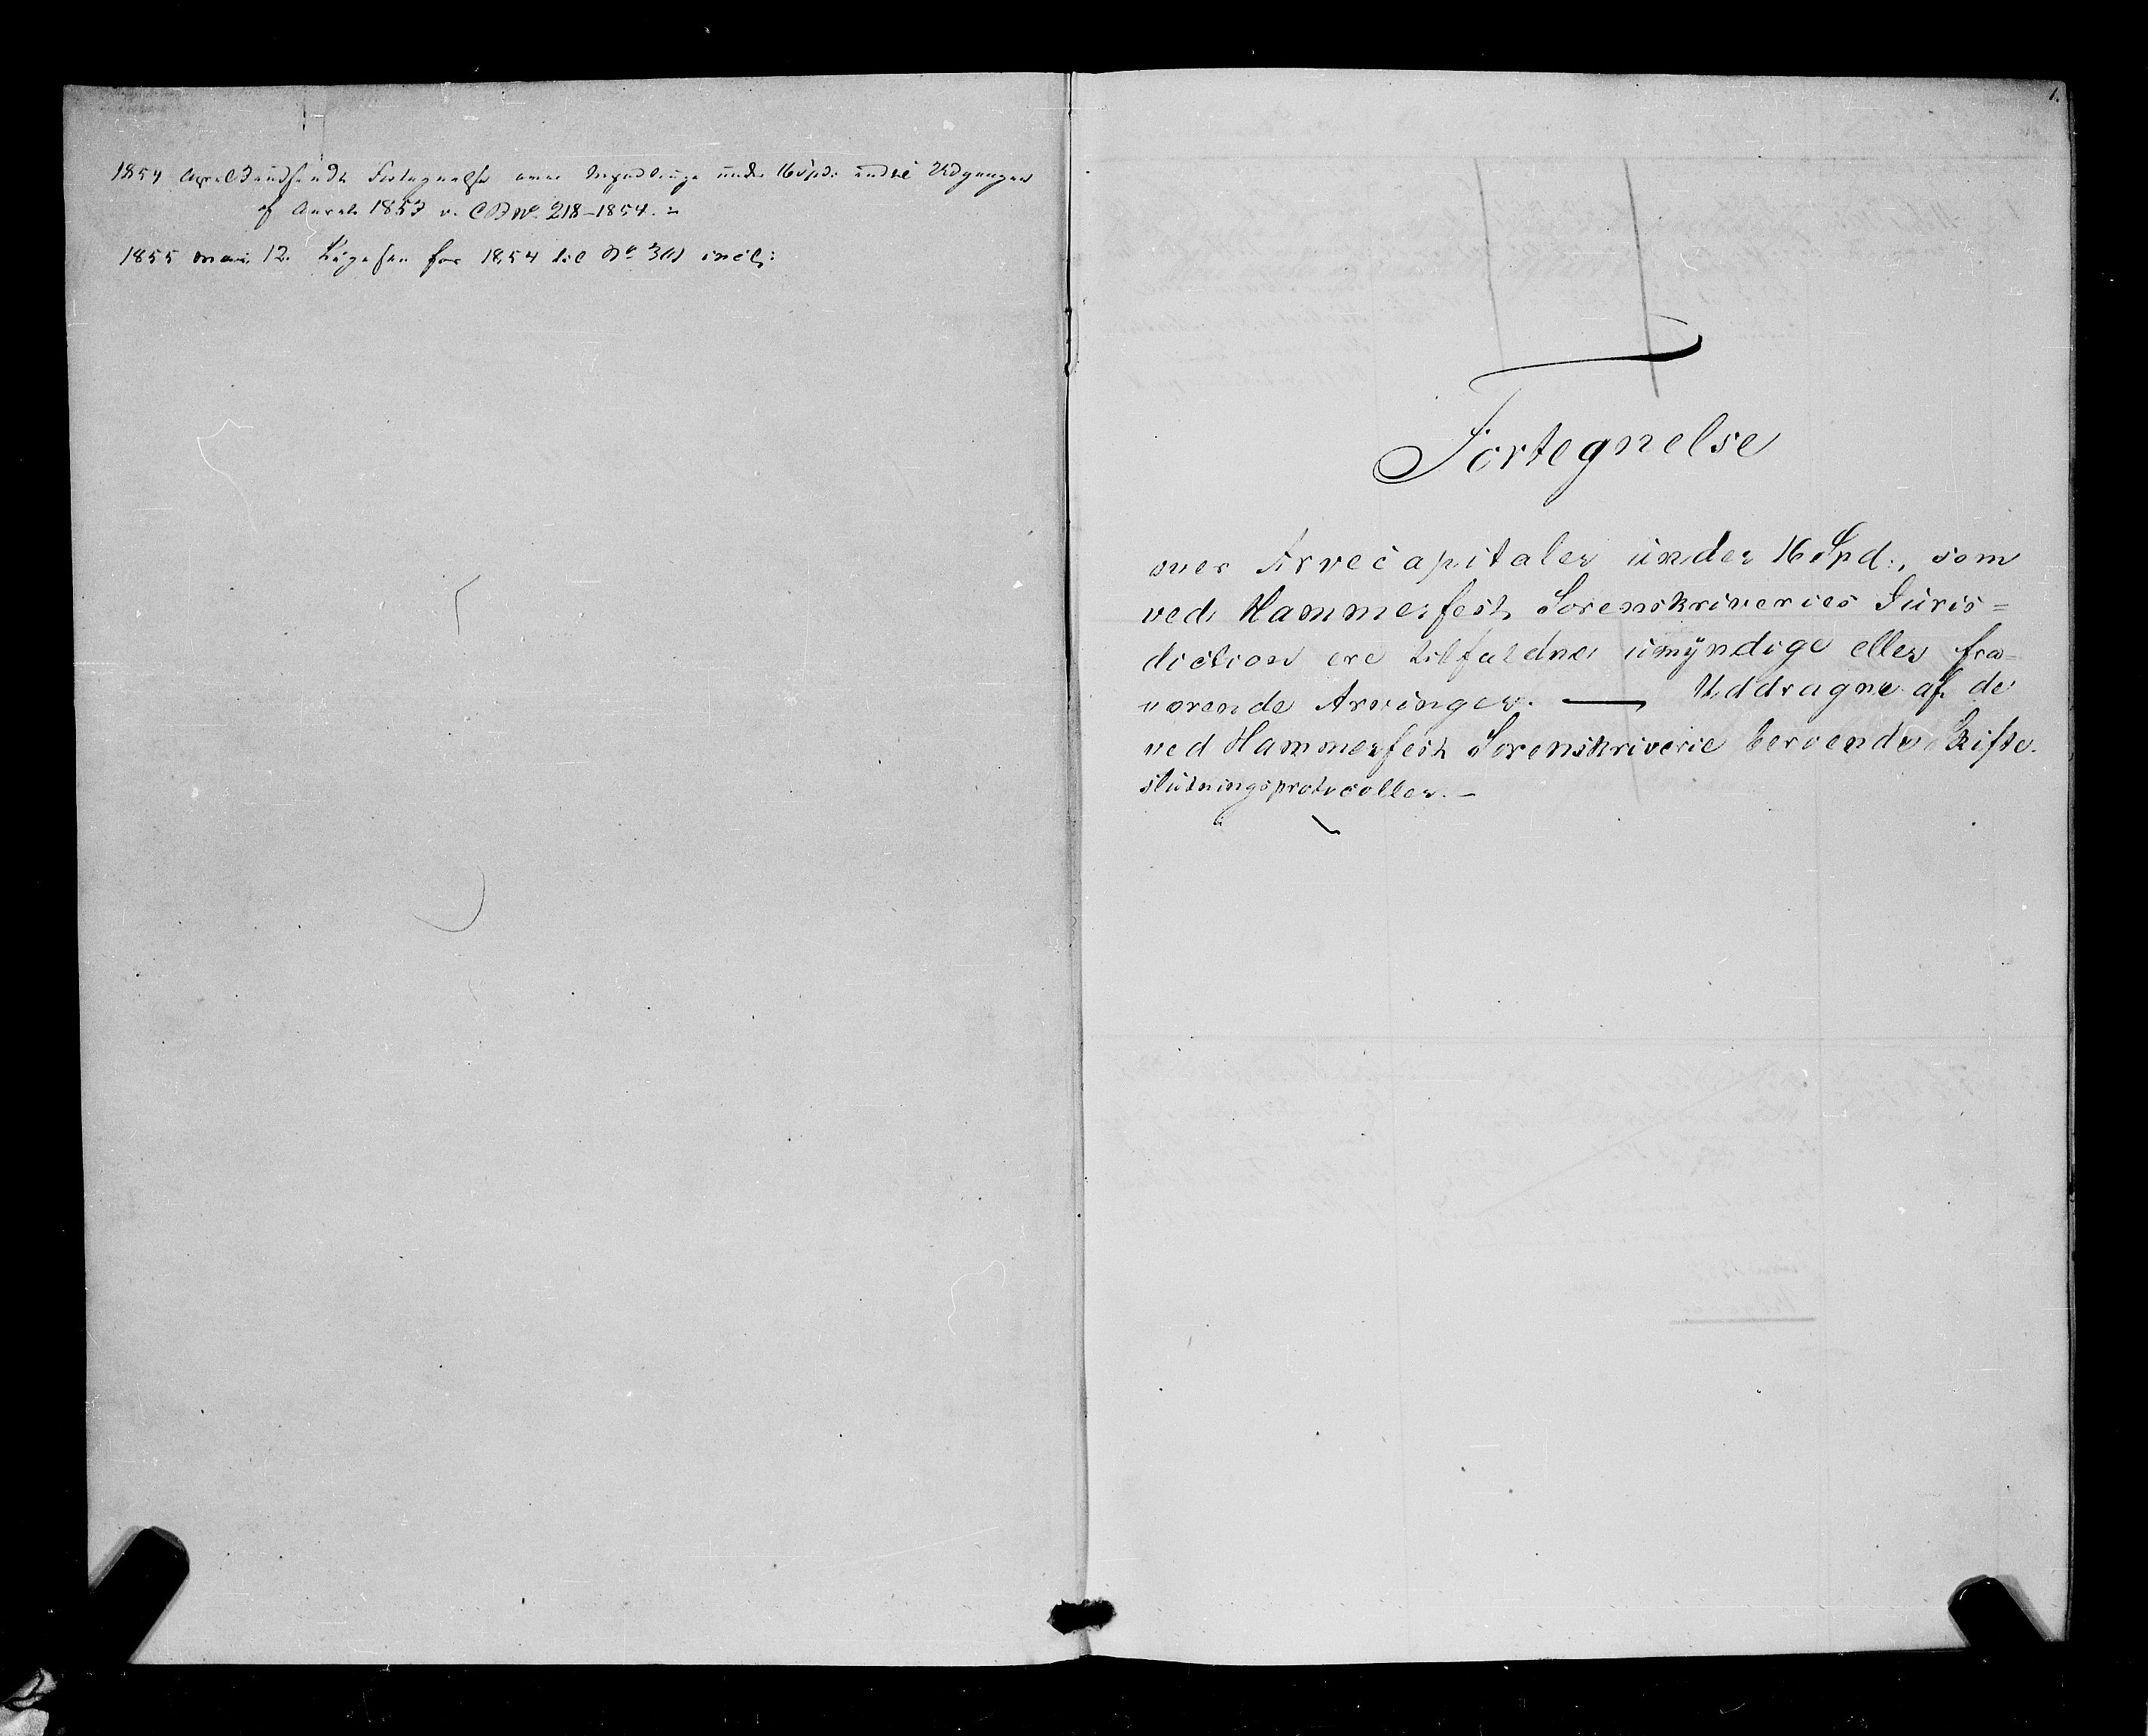 1854 April 3 indsendt Fortegnelse over Myndlinge under 16 Spd: indtil Udgangen
af Aaret 1853 v. CB No 218-1854.
1855 Mai 12. Ligesaa for 1854 til No incl:
1.
Fortegnelse
over Arvecapitaler under 16 Spd., som
ved Hammerfest Sorenskriveries Juris=
diction ere tilfaldne umyndige eller fra=
værende Arvinger. — Uddragne af de
ved Hammerfest Sorenskriverie beroende Skifte
slutningsprotocoller. –